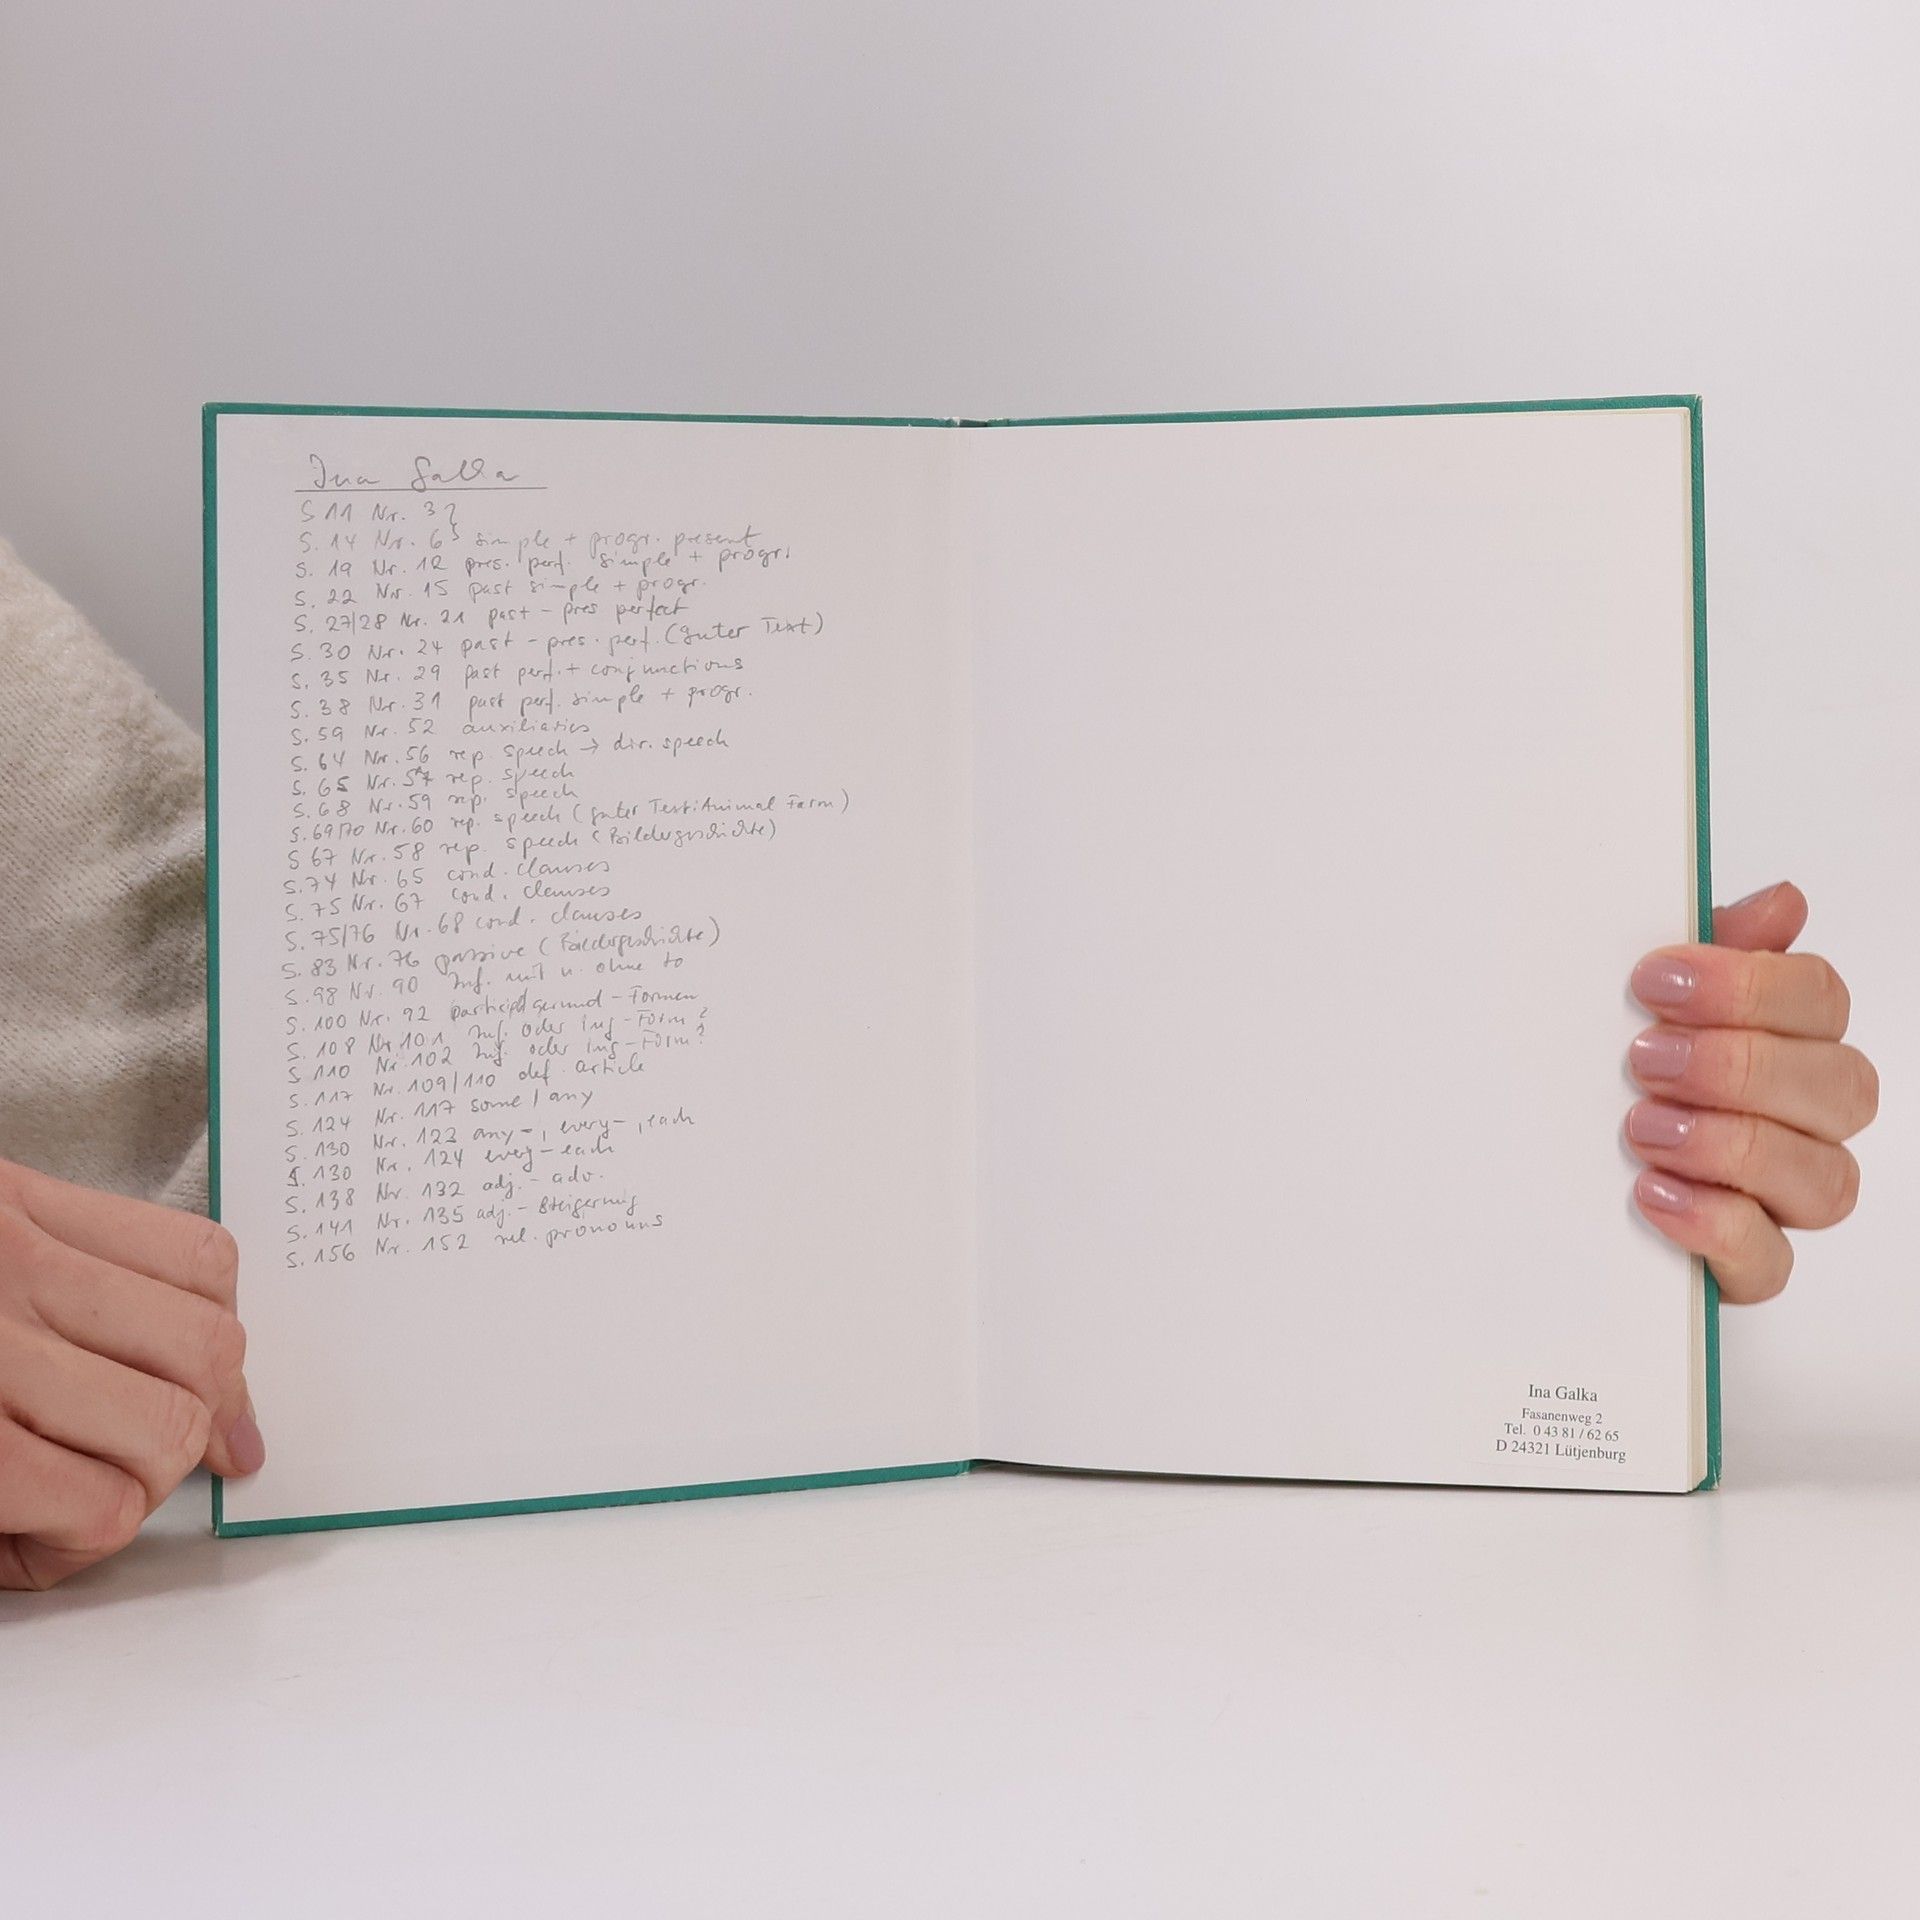 Ina Galka
S 11 Nr. 3 }
S. 14 Nr. 6 } simple + progr. present
S. 19 Nr. 12 pres. perf. simple + progr.
S. 22 Nr. 15 past simple + progr.
S. 27/28 Nr. 21 past - pres perfect
S. 30 Nr. 24 past - pres. perf. (guter Text)
S. 35 Nr. 29 past perf. + conjunctions
S. 38 Nr. 31 past perf. simple + progr.
S. 59 Nr. 52 auxiliaries
S. 64 Nr. 56 rep. speech → dir. speech
S. 65 Nr. 57 rep. speech
S. 68 Nr. 59 rep. speech
S. 69/70 Nr. 60 rep. speech (guter Text: Animal Farm)
S 67 Nr. 58 rep. speech (Bildergeschichte)
S. 74 Nr. 65 cond. clauses
S. 75 Nr. 67 cond. clauses
S. 75/76 Nr. 68 cond. clauses
S. 83 Nr. 76 passive (Bildergeschichte)
S. 98 Nr. 90 Inf. mit u. ohne to
S. 100 Nr. 92 gerund - Formen
S. 108 Nr. 101 Inf. oder ing - Form?
S 110 Nr. 102 Inf. oder ing - Form?
S. 117 Nr. 109/110 def. article
S. 124 Nr. 117 some / any
S. 130 Nr. 123 any-, every-, each
S. 130 Nr. 124 every - each
S. 138 Nr. 132 adj. - adv.
S. 141 Nr. 135 adj. - Steigerung
S. 156 Nr. 152 rel. pronouns
Ina Galka
Fasanenweg 2
Tel. 0 43 81 / 62 65
D 24321 Lütjenburg